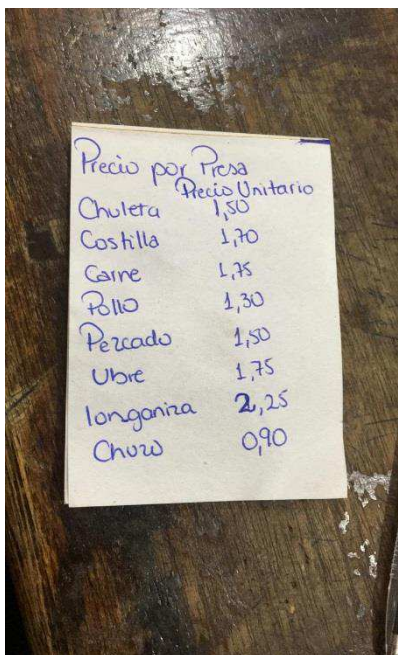 Precio por Presa
Precio Unitario
Chuleta 1,50
Costilla 1,70
Carne 1,75
Pollo 1,30
Pezcado 1,50
Ubre 1,75
longaniza 2,25
Chuzo 0,90